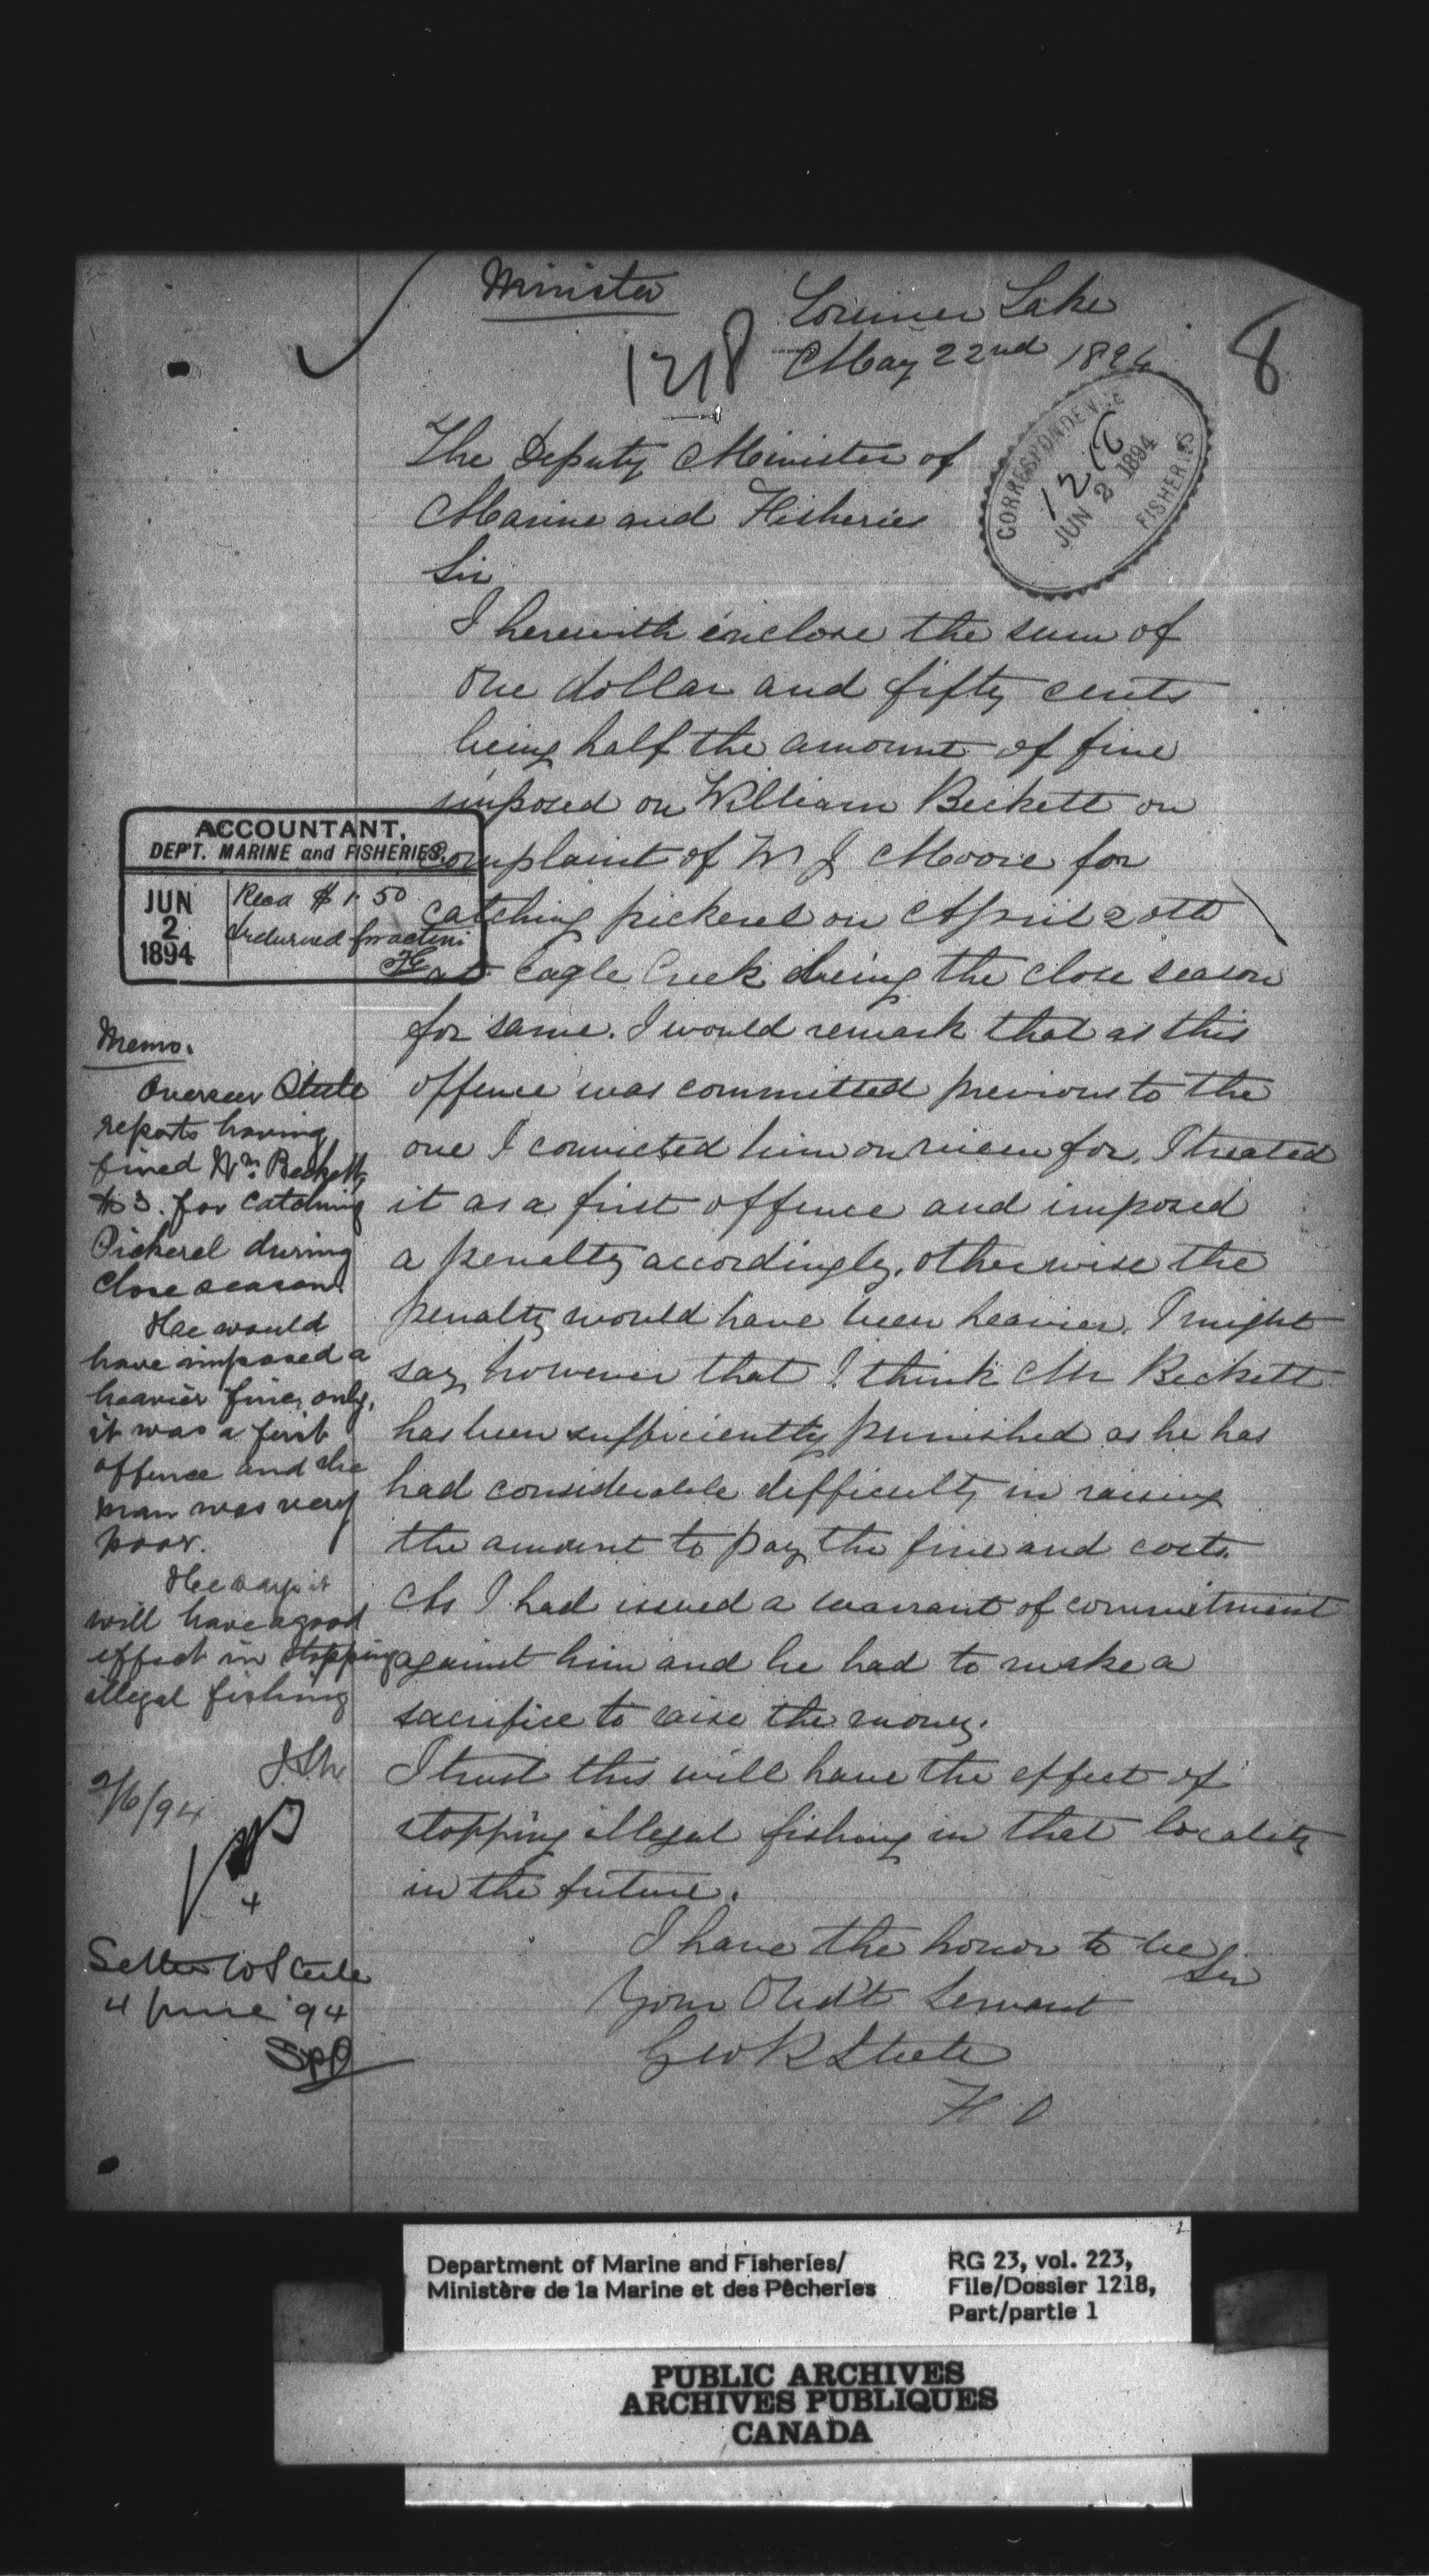 Minister
Lorimer Lake
May 22nd 1894
1218
8
The Deputy Minister of
Marine and Fisheries
CORRESPONDENCE
1218
JUN 2 1894
FISHERIES
Sir
I herewith enclose the sum of
one dollar and fifty cents
being half the amount of fine
imposed on William Beckett on
complaint of W J Moore for
catching pickerel on April 20th
at Eagle Creek being the close season
for same. I would remark that as this
offence was committed previous to the
one I convicted him on for, I treated
it as a first offence and imposed
a penalty accordingly, otherwise the
penalty would have been heavier. I might
say however that I think Mr Beckett
has been sufficiently punished as he has
had considerable difficulty in raising
the amount to pay the fine and costs.
As I had issued a warrant of commitment
against him and he had to make a
sacrifice to raise the money.
I trust this will have the effect of
stopping illegal fishing in that locality
in the future.
I have the honor to be
Sir
Your Obdt Servant
Geo R Steele
F. O
ACCOUNTANT,
DEP'T. MARINE and FISHERIES.
JUN
2
1894
Recd $1.50
& returned for action
Memo.
Overseer Steele
reports having
fined Wm. Beckett
$3. for catching
Pickerel during
close season.
He would
have imposed a
heavier fine, only,
it was a first
offence and the
man was very
poor.
He says it
will have a good
effect in stopping
illegal fishing
2/6/94
4
Letter to Steele
4 June '94
Department of Marine and Fisheries/
Ministère de la Marine et des Pêcheries
RG 23, vol. 223,
File/Dossier 1218,
Part/partie 1
PUBLIC ARCHIVES
ARCHIVES PUBLIQUES
CANADA